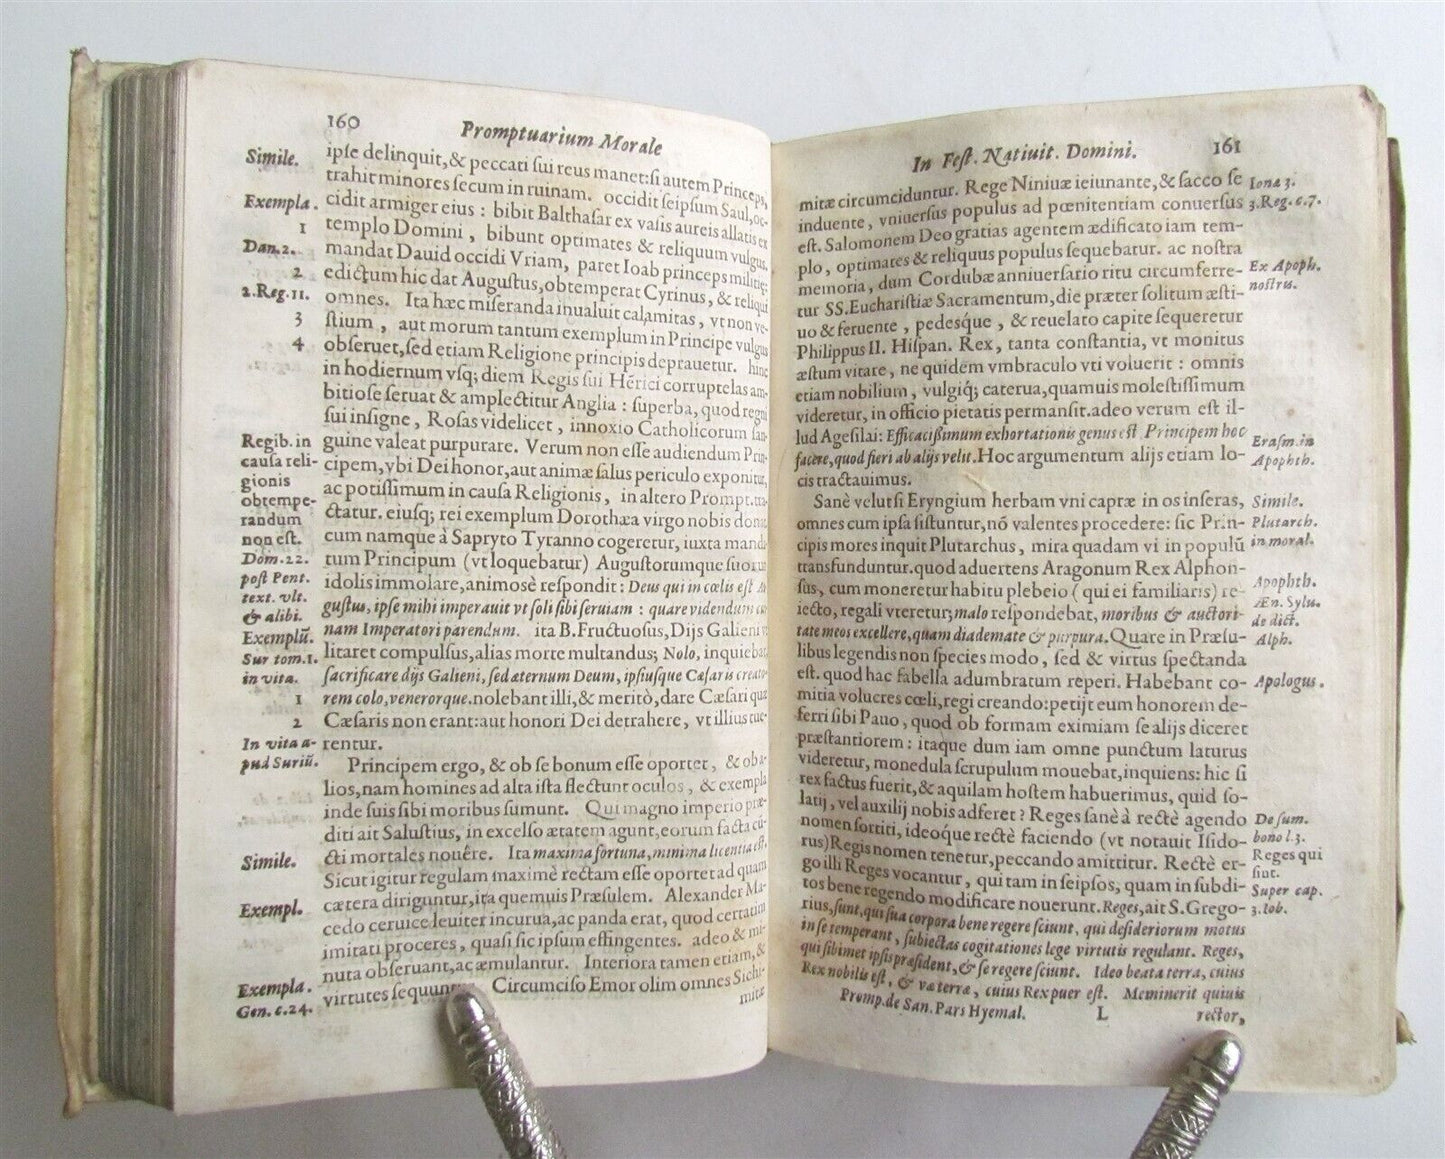 160
Promptuarium Morale
Simile.
ipſe delinquit,& peccati ſui reus manet:ſi autem Princeps,
trahit minores ſecum in ruinam. occidit ſeipſum Saul, oc-
Exempla.
cidit armiger eius : bibit Balthaſar ex vaſis aureis allatis ex
1
templo Domini , bibunt optimates & reliquum vulgus.
Dan.2.
mandat Dauid occidi Vriam, paret Ioab princeps militię;
2
edictum hic dat Auguſtus,obtemperat Cyrinus, & reliqui
2.Reg.11.
omnes. Ita hæc miſeranda inualuit calamitas, vt non ve-
3
ſtium , aut morum tantum exemplum in Principe vulgus
4
obſeruet,ſed etiam Religione principis deprauetur. hinc
in hodiernum vſq; diem Regis ſui Hērici corruptelas am-
bitioſe ſeruat & amplectitur Anglia : ſuperba, quod regni
ſui inſigne, Roſas videlicet , innoxio Catholicorum ſan-
Regib. in
guine valeat purpurare. Verum non eſſe audiendum Prin-
cauſa reli-
cipem,vbi Dei honor,aut animæ ſalus periculo exponitur,
gionis
ac potiſſimum in cauſa Religionis, in altero Prompt.tra-
obtempe-
ctatur. eiuſq; rei exemplum Dorothæa virgo nobis donat
randum
non eſt.
cum namque à Sapryto Tyranno cogeretur, iuxta manda-
Dom.22.
tum Principum (vt loquebatur) Auguſtorumque ſuorum
poſt Pent.
idolis immolare,animosè reſpondit : Deus qui in cœlis eſt Au-
text. vlt.
guſtus, ipſe mihi imperauit vt ſoli ſibi ſeruiam : quare videndum cui
& alibi.
Exemplū.
nam Imperatori parendum. ita B.Fructuoſus, Dijs Galieni
Sur tom.1.
litaret compulſus,alias morte multandus; Nolo, inquiebat,
in vita.
ſacrificare dijs Galieni, ſed æternum Deum, ipſiuſque Cæſaris creato-
1
rem colo,venerorque.nolebant illi,& meritò,dare Cæſari quæ
2
Cæſaris non erant:aut honori Dei detrahere, vt illius tue-
In vita a-
rentur.
pud Suriū.
Principem ergo, & ob ſe bonum eſſe oportet, & ob a-
lios,nam homines ad alta iſta flectunt oculos , & exempla
inde ſuis ſibi moribus ſumunt. Qui magno imperio præ-
diti ait Saluſtius, in excelſo ætatem agunt,eorum facta cū-
cti mortales nouêre. Ita maxima fortuna,minima licentia eſt.
Simile.
Sicut igitur regulam maximè rectam eſſe oportet ad quam
cætera diriguntur,ita quemuis Præſulem. Alexander Ma-
Exempl.
cedo ceruice leuiter incurua,ac panda erat, quod certatim
imitati proceres , quaſi ſic ipſum effingentes. adeo & mi-
nuta obſeruant,ac æmulantur. Interiora tamen etiam,&
Exempla.
virtutes ſequuntur. Circumciſo Emor olim omnes Sichi-
Gen. c.24.
mitæ
In Feſt. Natiuit. Domini.
161
mitæ circumciduntur. Rege Niniuæ ieiunante,& ſacco ſe
Iona 3.
induente, vniuerſus populus ad pœnitentiam conuerſus
3.Reg.c.7.
eſt. Salomonem Deo gratias agentem ædificato iam tem-
plo , optimates & reliquus populus ſequebatur. ac noſtra
memoria, dum Cordubæ anniuerſario ritu circumferre-
Ex Apoph.
noſtris.
tur SS.Euchariſtiæ Sacramentum,die præter ſolitum æſti-
uo & feruente , pedeſque , & reuelato capite ſequeretur
Philippus II. Hiſpan. Rex, tanta conſtantia, vt monitus
æſtum vitare , ne quidem vmbraculo vti voluerit : omnis
etiam nobilium , vulgiq; caterua,quamuis moleſtiſſimum
videretur, in officio pietatis permanſit.adeo verum eſt il-
lud Ageſilai: Efficacißimum exhortationis genus eſt Principem hoc
Eraſm.in
facere,quod fieri ab alijs velit.Hoc argumentum alijs etiam lo-
Apophth.
cis tractauimus.
Sanè velut ſi Eryngium herbam vni capræ in os inſeras,
Simile.
omnes cum ipſa ſiſtuntur,nō valentes procedere: ſic Prin-
Plutarch.
cipis mores inquit Plutarchus, mira quadam vi in populū
in moral.
transfunduntur.quod aduertens Aragonum Rex Alphon-
ſus, cum moneretur habitu plebeio ( qui ei familiaris) re-
Apophth.
iecto, regali vteretur;malo reſpondebat, moribus & auctori-
Æn. Sylu.
de dict.
tate meos excellere,quam diademate & purpura.Quare in Præſu-
Alph.
libus legendis non ſpecies modo , ſed & virtus ſpectanda
eſt. quod hac fabella adumbratum reperi. Habebant co-
Apologus.
mitia volucres cœli,regi creando:petijt eum honorem de-
ferri ſibi Pauo, quod ob formam eximiam ſe alijs diceret
præſtantiorem : itaque dum iam omne punctum laturus
videretur, monedula ſcrupulum mouebat,inquiens: hic ſi
rex factus fuerit,& aquilam hoſtem habuerimus, quid ſo-
latij, vel auxilij nobis adferet ? Reges ſanè à rectè agendo
nomen ſortiti, ideoque rectè faciendo (vt notauit Iſido-
De ſum.
rus)Regis nomen tenetur,peccando amittitur. Rectè er-
bono l.3.
go illi Reges vocantur, qui tam in ſeipſos, quam in ſubdi-
Reges qui
ſint.
tos bene regendo modificare nouerunt.Reges,ait S.Grego-
Super cap.
rius,ſunt,qui ſua corpora bene regere ſciunt, qui deſideriorum motus
3.Iob.
in ſe temperant, ſubiectas cogitationes lege virtutis regulant. Reges,
qui ſibimet ipſis præſident,& ſe regere ſciunt. Ideo beata terra, cuius
Rex nobilis eſt, & væ terra, cuius Rex puer eſt. Meminerit quiuis
Promp.de San. Pars Hyemal. L rector,